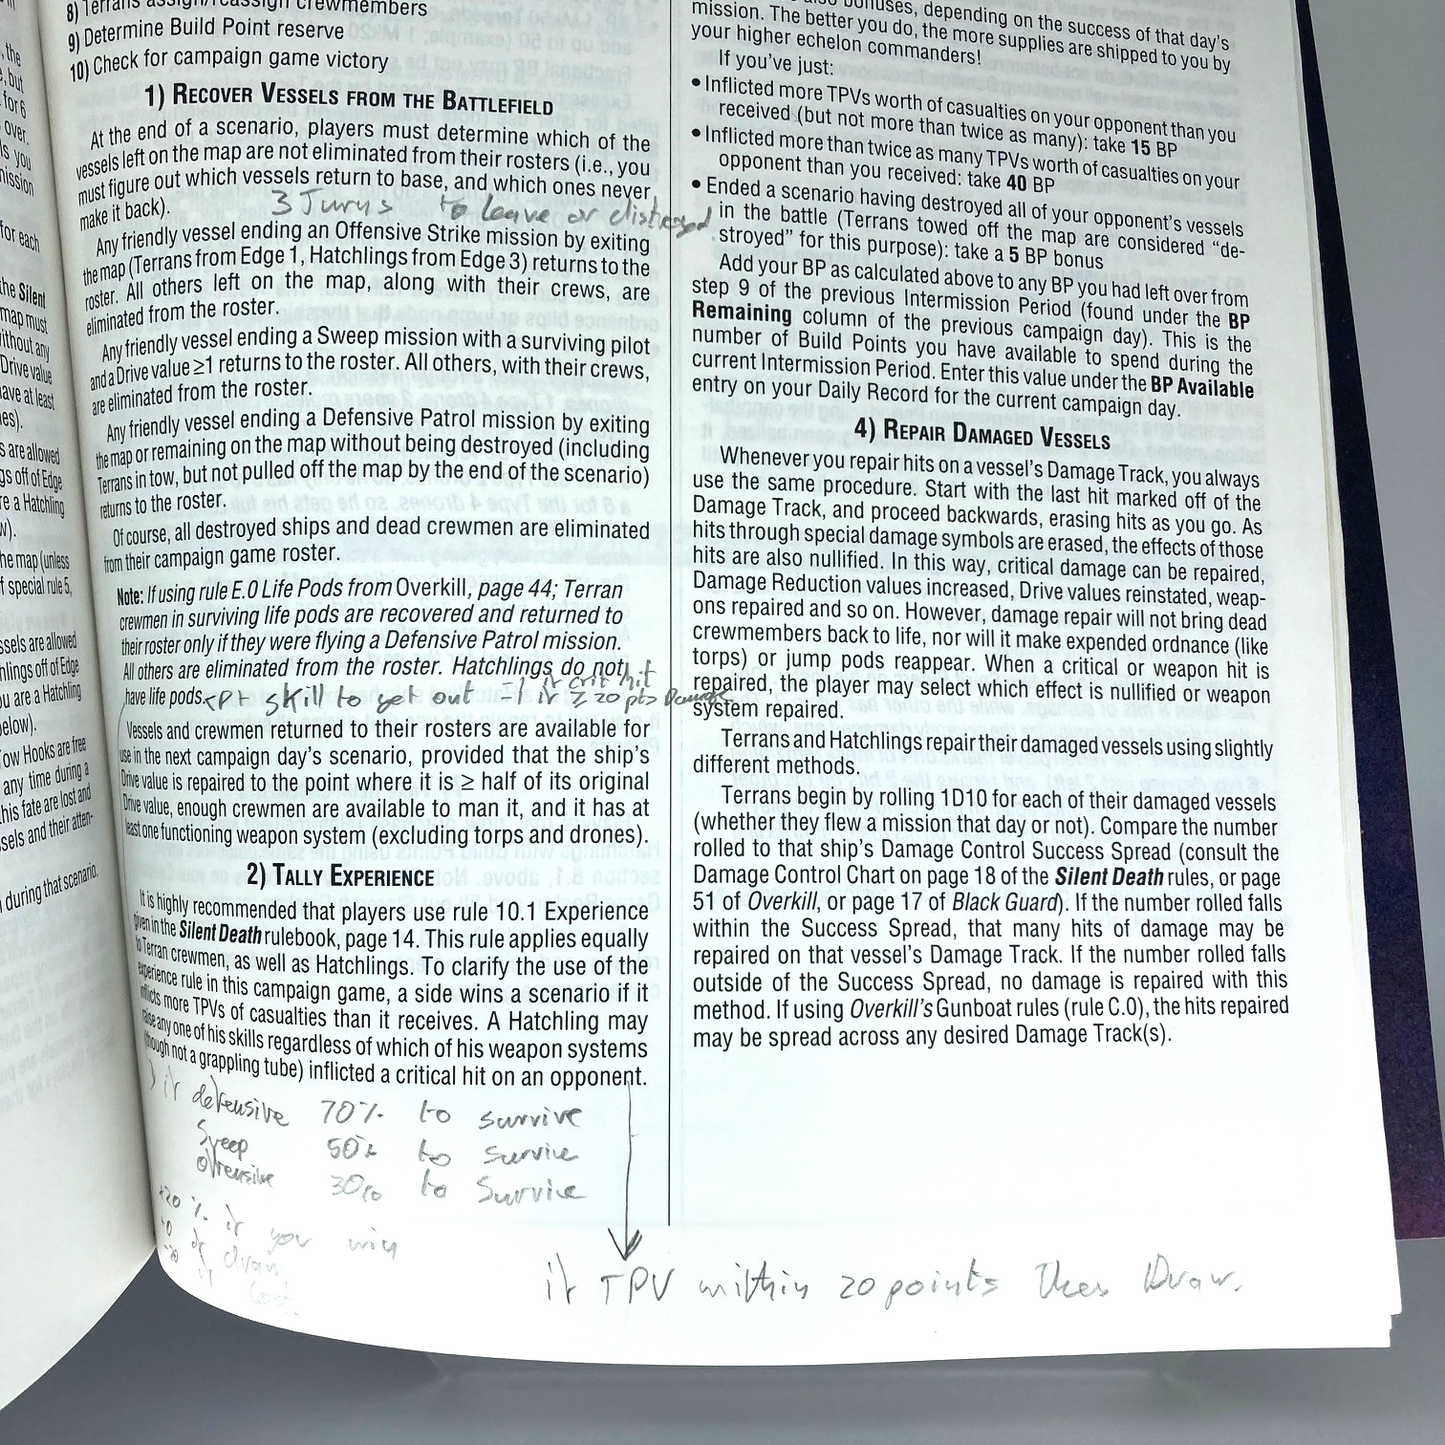 the
, but
for 6
over.
ls you
mission
for each
the Silent
map must
ithout any
Drive value
ave at least
es).
s are allowed
gs off of Edge
re a Hatchling
w).
he map (unless
f special rule 5,
ssels are allowed
hlings off of Edge
ou are a Hatchling
elow).
ow Hooks are free
any time during a
his fate are lost and
ssels and their atten-
during that scenario.
8) Terrans assign/reassign crewmembers
9) Determine Build Point reserve
10) Check for campaign game victory
1) RECOVER VESSELS FROM THE BATTLEFIELD
At the end of a scenario, players must determine which of the
vessels left on the map are not eliminated from their rosters (i.e., you
must figure out which vessels return to base, and which ones never
make it back).
3 Turns to leave or distroyed
Any friendly vessel ending an Offensive Strike mission by exiting
the map (Terrans from Edge 1, Hatchlings from Edge 3) returns to the
roster. All others left on the map, along with their crews, are
eliminated from the roster.
Any friendly vessel ending a Sweep mission with a surviving pilot
and a Drive value ≥1 returns to the roster. All others, with their crews,
are eliminated from the roster.
Any friendly vessel ending a Defensive Patrol mission by exiting
the map or remaining on the map without being destroyed (including
Terrans in tow, but not pulled off the map by the end of the scenario)
returns to the roster.
Of course, all destroyed ships and dead crewmen are eliminated
from their campaign game roster.
Note: If using rule E.0 Life Pods from Overkill, page 44; Terran
crewmen in surviving life pods are recovered and returned to
their roster only if they were flying a Defensive Patrol mission.
All others are eliminated from the roster. Hatchlings do not
have life pods.
skill to get out -1 if crit hit
if ≥ 20 pts Damage
Vessels and crewmen returned to their rosters are available for
use in the next campaign day's scenario, provided that the ship's
Drive value is repaired to the point where it is ≥ half of its original
Drive value, enough crewmen are available to man it, and it has at
least one functioning weapon system (excluding torps and drones).
2) TALLY EXPERIENCE
It is highly recommended that players use rule 10.1 Experience
given in the Silent Death rulebook, page 14. This rule applies equally
to Terran crewmen, as well as Hatchlings. To clarify the use of the
experience rule in this campaign game, a side wins a scenario if it
inflicts more TPVs of casualties than it receives. A Hatchling may
raise any one of his skills regardless of which of his weapon systems
(though not a grappling tube) inflicted a critical hit on an opponent.
if defensive 70% to survive
Sweep 50% to survive
offensive 30% to survive
+20 % if you win
+0 if draw
-20 if lost.
if TPV within 20 points then Draw.
bonuses, depending on the success of that day's
mission. The better you do, the more supplies are shipped to you by
your higher echelon commanders!
If you've just:
• Inflicted more TPVs worth of casualties on your opponent than you
received (but not more than twice as many): take 15 BP
• Inflicted more than twice as many TPVs worth of casualties on your
opponent than you received: take 40 BP
• Ended a scenario having destroyed all of your opponent's vessels
in the battle (Terrans towed off the map are considered "de-
stroyed" for this purpose): take a 5 BP bonus
Add your BP as calculated above to any BP you had left over from
step 9 of the previous Intermission Period (found under the BP
Remaining column of the previous campaign day). This is the
number of Build Points you have available to spend during the
current Intermission Period. Enter this value under the BP Available
entry on your Daily Record for the current campaign day.
4) REPAIR DAMAGED VESSELS
Whenever you repair hits on a vessel's Damage Track, you always
use the same procedure. Start with the last hit marked off of the
Damage Track, and proceed backwards, erasing hits as you go. As
hits through special damage symbols are erased, the effects of those
hits are also nullified. In this way, critical damage can be repaired,
Damage Reduction values increased, Drive values reinstated, weap-
ons repaired and so on. However, damage repair will not bring dead
crewmembers back to life, nor will it make expended ordnance (like
torps) or jump pods reappear. When a critical or weapon hit is
repaired, the player may select which effect is nullified or weapon
system repaired.
Terrans and Hatchlings repair their damaged vessels using slightly
different methods.
Terrans begin by rolling 1D10 for each of their damaged vessels
(whether they flew a mission that day or not). Compare the number
rolled to that ship's Damage Control Success Spread (consult the
Damage Control Chart on page 18 of the Silent Death rules, or page
51 of Overkill, or page 17 of Black Guard). If the number rolled falls
within the Success Spread, that many hits of damage may be
repaired on that vessel's Damage Track. If the number rolled falls
outside of the Success Spread, no damage is repaired with this
method. If using Overkill's Gunboat rules (rule C.0), the hits repaired
may be spread across any desired Damage Track(s).